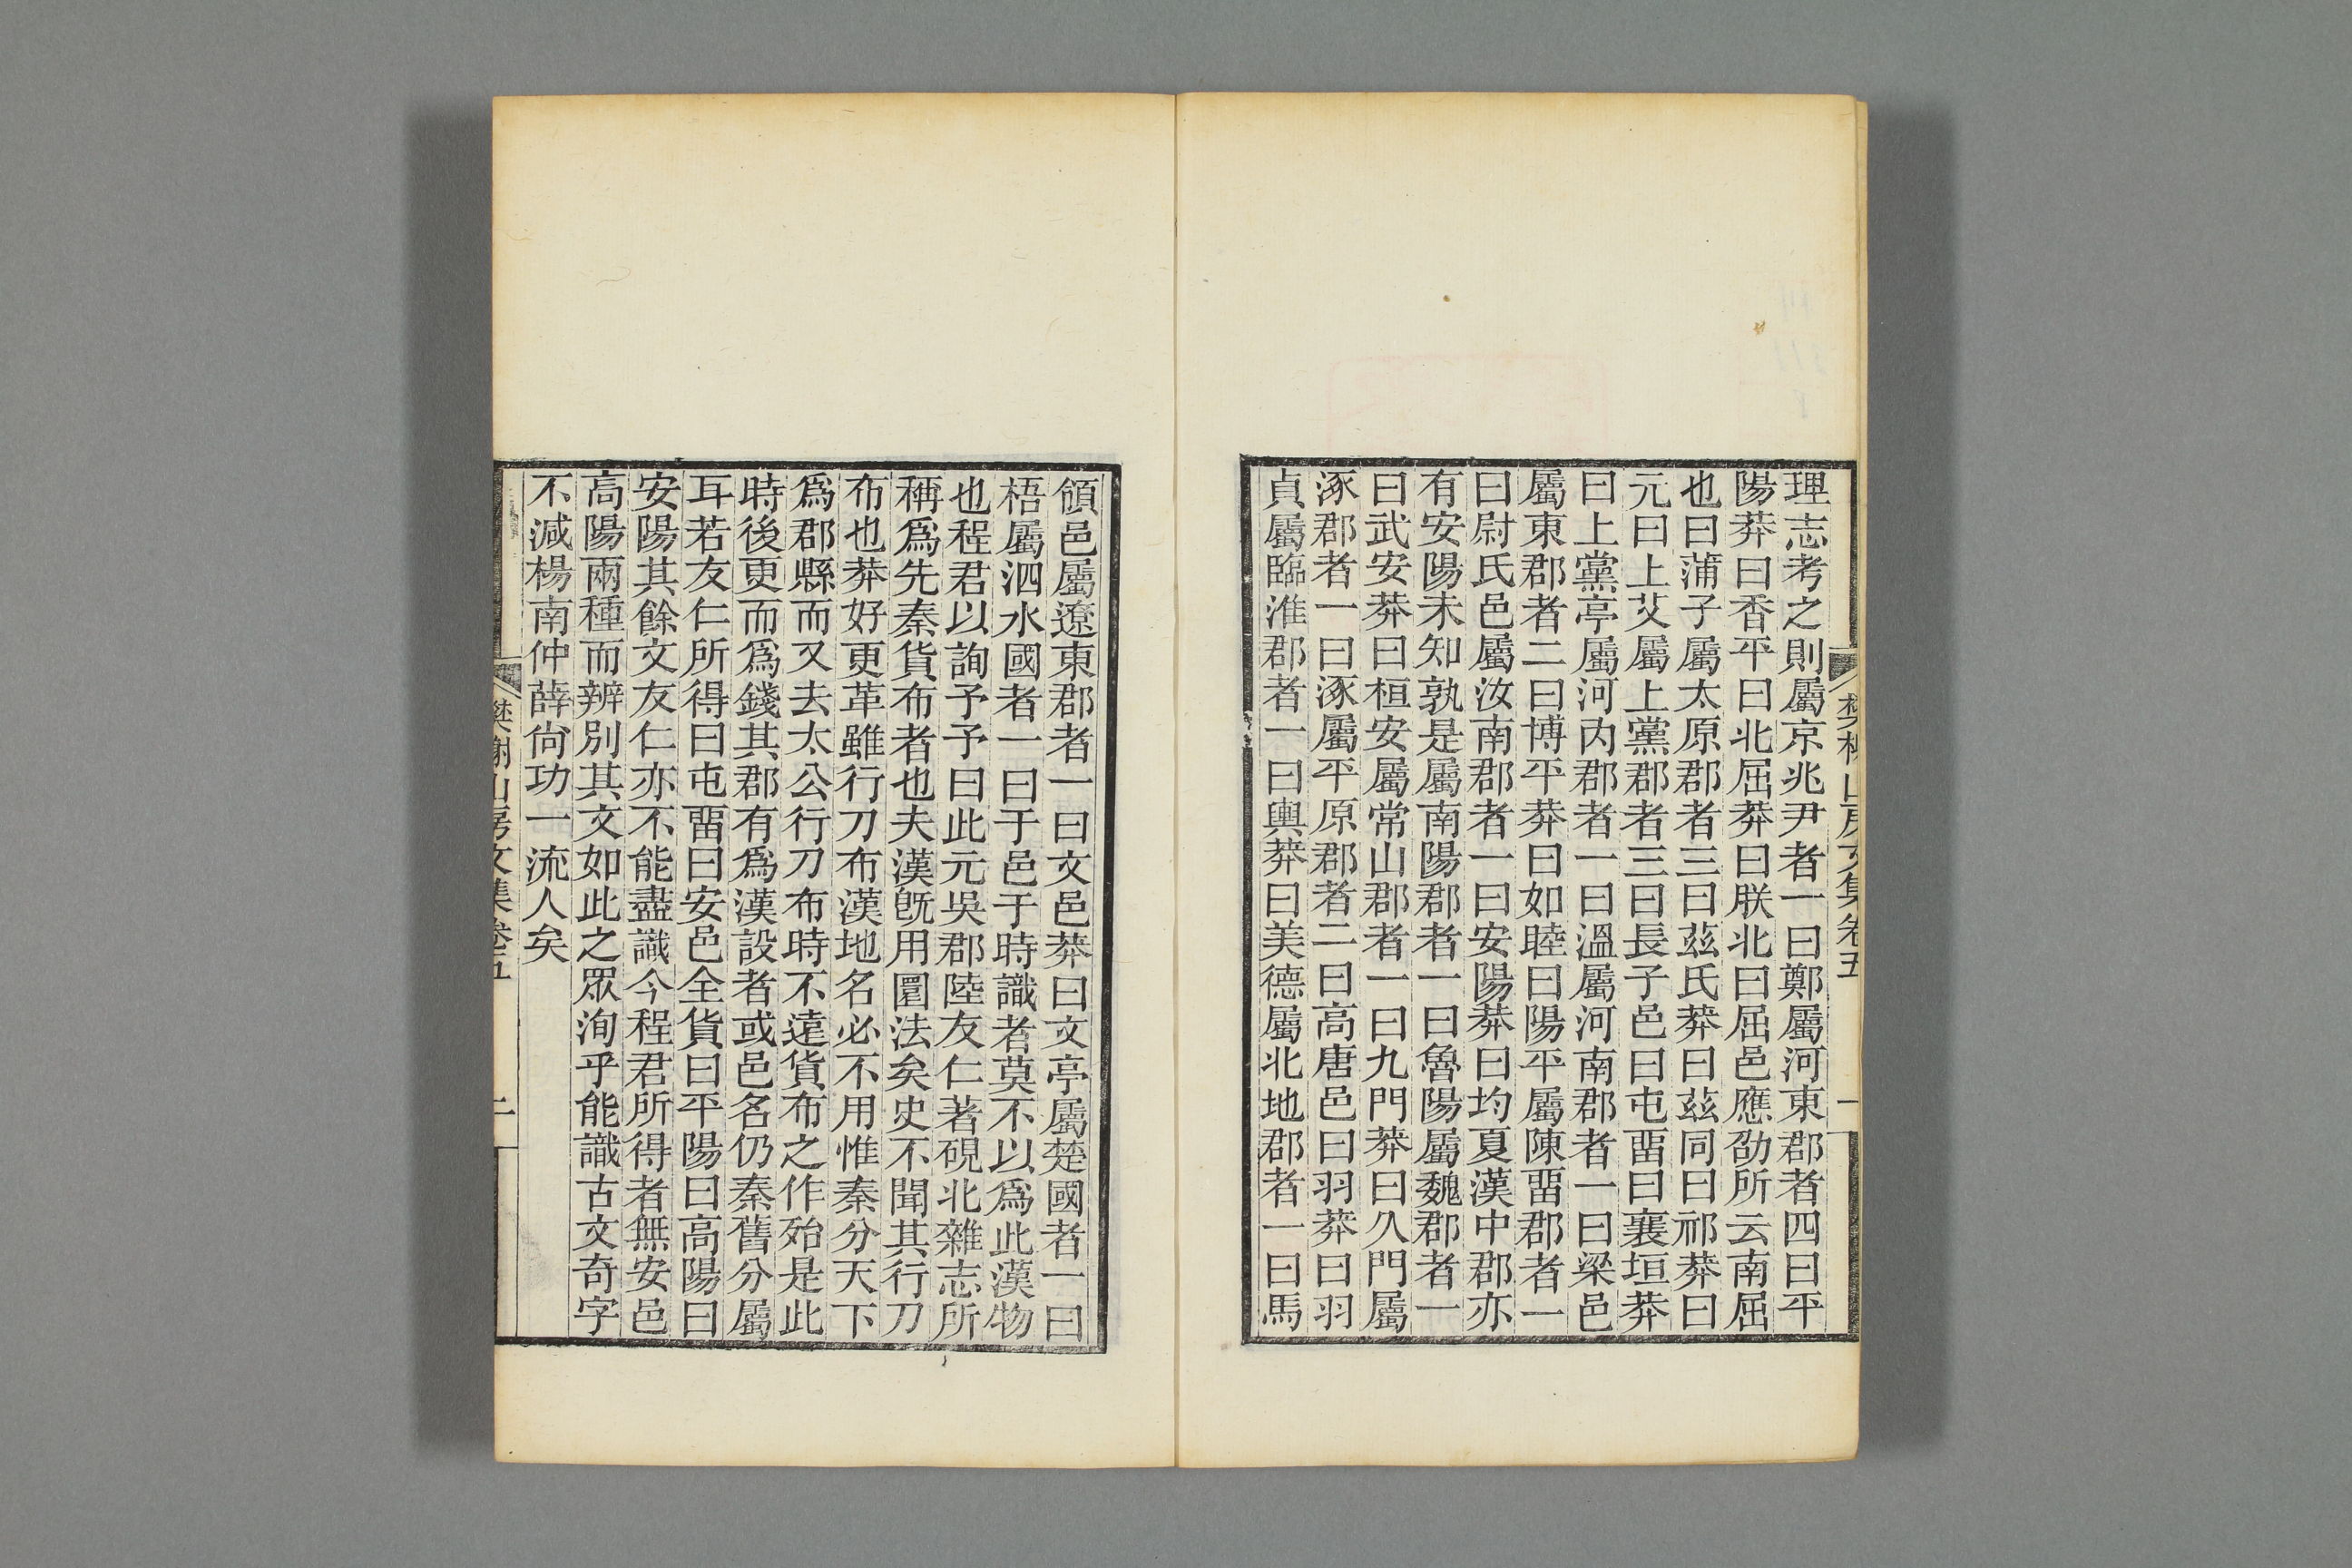 理志考之則屬京兆尹者一曰鄭屬河東郡者四曰平
陽莽曰香平曰北屈莽曰朕北曰屈邑應劭所云南屈
也曰蒲子屬太原郡者三曰茲氏莽曰茲同曰祁莽曰
元曰上艾屬上黨郡者三曰長子邑曰屯畱曰襄垣莽
曰上黨亭屬河内郡者一曰溫屬河南郡者一曰梁邑
屬東郡者二曰博平莽曰如睦曰陽平屬陳畱郡者一
曰尉氏邑屬汝南郡者一曰安陽莽曰均夏漢中郡亦
有安陽未知孰是屬南陽郡者一曰魯陽屬魏郡者一
曰武安莽曰桓安屬常山郡者一曰九門莽曰久門屬
涿郡者一曰涿屬平原郡者二曰高唐邑曰羽莽曰羽
貞屬臨淮郡者一曰輿莽曰美德屬北地郡者一曰馬
樊榭山房文集卷五
一
領邑屬遼東郡者一曰文邑莽曰文亭屬楚國者一曰
梧屬泗水國者一曰于邑于時識者莫不以爲此漢物
也程君以詢予予曰此元吳郡陸友仁著硯北雜志所
稱爲先秦貨布者也夫漢旣用圜法矣史不聞其行刀
布也莽好更革雖行刀布漢地名必不用惟秦分天下
爲郡縣而又去太公行刀布時不遠貨布之作殆是此
時後更而爲錢其郡有爲漢設者或邑名仍秦舊分屬
耳若友仁所得曰屯畱曰安邑全貨曰平陽曰高陽曰
安陽其餘文友仁亦不能盡識今程君所得者無安邑
高陽兩種而辨別其文如此之眾洵乎能識古文奇字
不減楊南仲薛尙功一流人矣
樊榭山房文集卷五
二